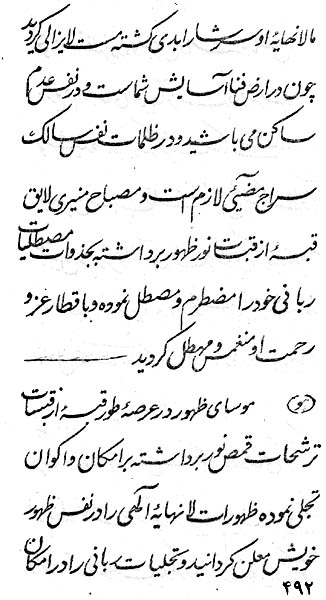 مالانهایهٔ او سرشار ابدی کشته مست لایزالی کردید
چون در ارض فنا آسایش شماست و در نفس عدم
ساکن می باشید و در ظلمات نفس سالک
سراج مضیئی لازم است و مصباح منیری لایق
قبسهٔ از قبسات نور ظهور برداشته بجذوات مصطلیات
ربانی خود را مضطرم و مصطل نموده و باقطار عز و
رحمت او منغمس و مهطل کردید
(هو) موسای ظهور در عرصهٔ طور قبسهٔ از قبسات
ترشحات قمص نور برداشته بر امکان و اکوان
تجلی نموده ظهورات لانهایهٔ الهی را در نفس ظهور
خویش معلن کردانید و تجلیات ربانی را در امکان
۴۹۲